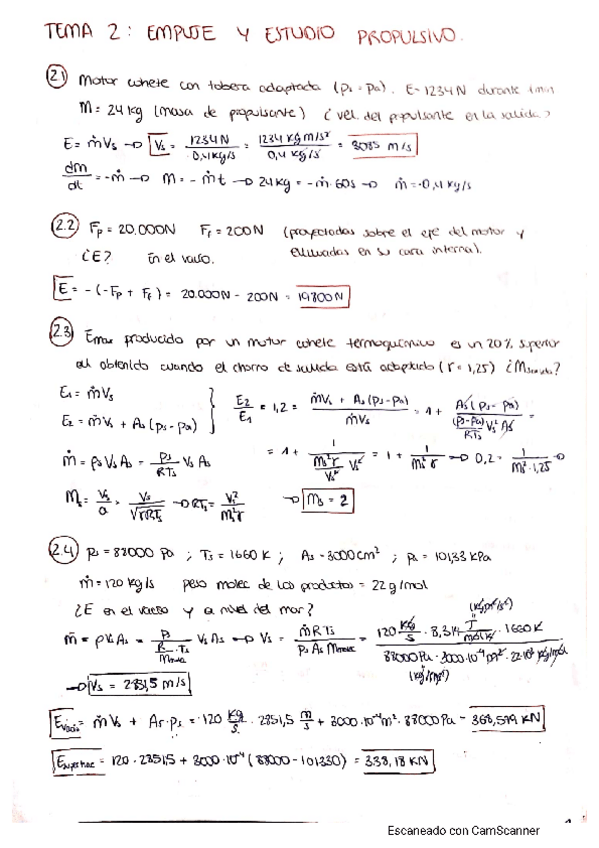 TEMA 2: EMPUJE Y ESTUDIO PROPULSIVO.
2.1 Motor cohete con tobera adaptada (ps = pa). E = 1234N durante 1min
M = 24 kg (masa de propulsante) ¿ vel. del propulsante en la salida?
E = ṁVs → Vs = 1234N / 0,4kg/s = 1234 kg m/s² / 0,4 kg/s = 3085 m/s
dm/dt = -ṁ → M = -ṁt → 24kg = -ṁ·60s → ṁ = -0,4 kg/s
2.2 Fp = 20.000N Ff = 200N (proyectadas sobre el eje del motor y
¿E? En el vacío. evaluadas en su cara interna).
E = -(-Fp + Ff) = 20.000N - 200N = 19800N
2.3 Emax producido por un motor cohete termoquímico es un 20% superior
al obtenido cuando el chorro de salida está adaptado (γ = 1,25) ¿Msalida?
E1 = ṁVs
E2 = ṁVs + As(ps - pa)
E2/E1 = 1,2 = ṁVs + As(ps-pa) / ṁVs = 1 + As(ps-pa) / (ps-pa)/RTs Vs² As =
ṁ = ρs Vs As = ps/RTs Vs As
= 1 + 1 / Ms²γ/Vs² Vs² = 1 + 1/Ms²γ → 0,2 = 1/Ms²·1,25 →
Ms = Vs/a = Vs/√γRTs → RTs = Vs²/Ms²γ
→ Ms = 2
2.4 ps = 88000 Pa ; Ts = 1660 K ; As = 3000cm² ; pa = 101,33 kPa
ṁ = 120 kg/s peso molec de los productos = 22 g/mol
¿E en el vacío y a nivel del mar?
ṁ = ρVsAs = ps / R/Mmolec ·Ts Vs As → Vs = ṁRTs / ps As Mmolec = 120 kg/s · 8,314 J/mol K · 1660K / 88000Pa · 3000·10⁻⁴m² · 22·10⁻³ kg/mol
→ Vs = 2851,5 m/s
Evacío = ṁVs + As·ps = 120 kg/s · 2851,5 m/s + 3000·10⁻⁴m² · 88000Pa = 368,579 KN
= 120·2851,5 + 3000·10⁻⁴(88000 - 101330) = 338,18 KN
Escaneado con CamScanner